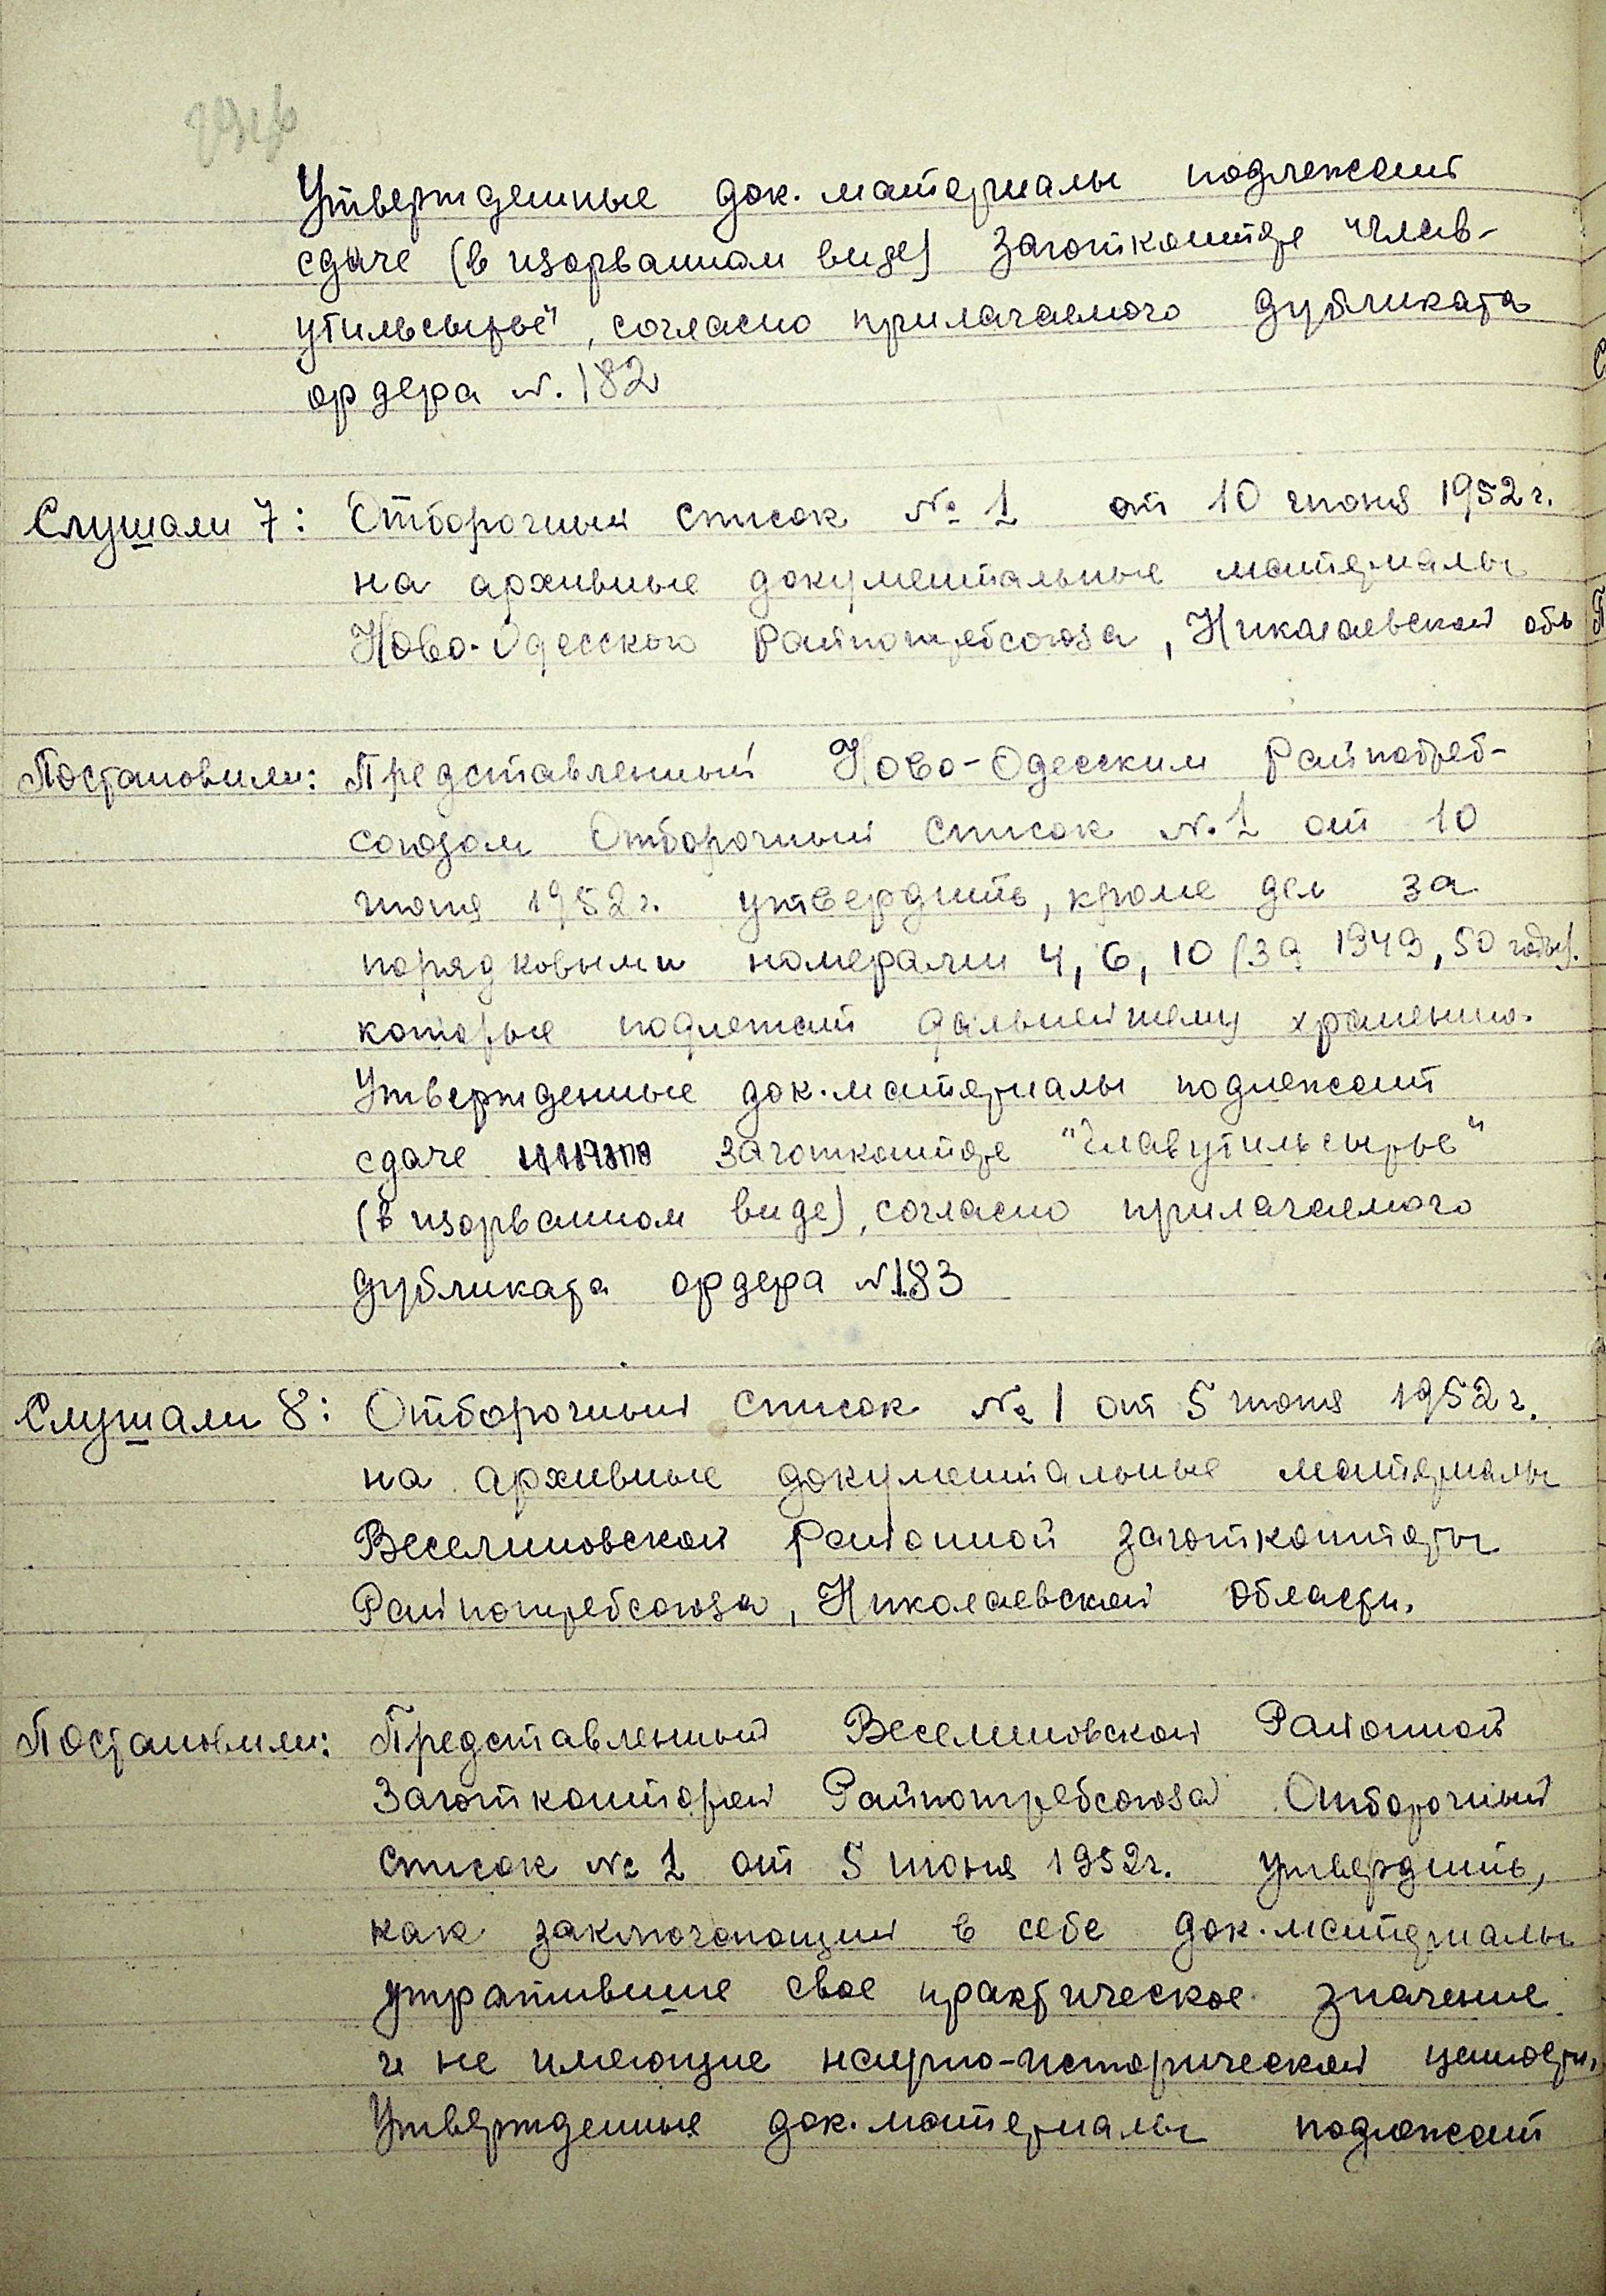 Утвержденные док. материалы подлежат
сдаче (в изорванном виде) Заготконторе "Глав-
утильсырье", согласно прилагаемого дубликата
ордера N. 182
Слушали 7: Отборочный список № 1 от 10 июня 1952 г.
на архивные документальные материалы
Ново-Одесского Райпотребсоюза, Николаевской обл
Постановили: Представленный Ново-Одесским Райпотреб-
союзом Отборочный список N. 1 от 10
июня 1952 г. утвердить, кроме дел за
порядковыми номерами 4, 6, 10 (за 1949, 50 годы).
которые подлежат дальнейшему хранению.
Утвержденные док. материалы подлежат
сдаче Заготконторе "Главутильсырье"
(в изорванном виде), согласно прилагаемого
дубликата ордера N 183
Слушали 8: Отборочный список № 1 от 5 июня 1952 г.
на архивные документальные материалы
Веселиновской районной заготконторы
Райпотребсоюза, Николаевской области.
Постановили: Представленный Веселиновской Районной
Заготконторой Райпотребсоюза Отборочный
список № 1 от 5 июня 1952 г. утвердить,
как заключающий в себе док. материалы
утратившие свое практическое значение
и не имеющие научно-исторической ценности.
Утвержденные док. материалы подлежат